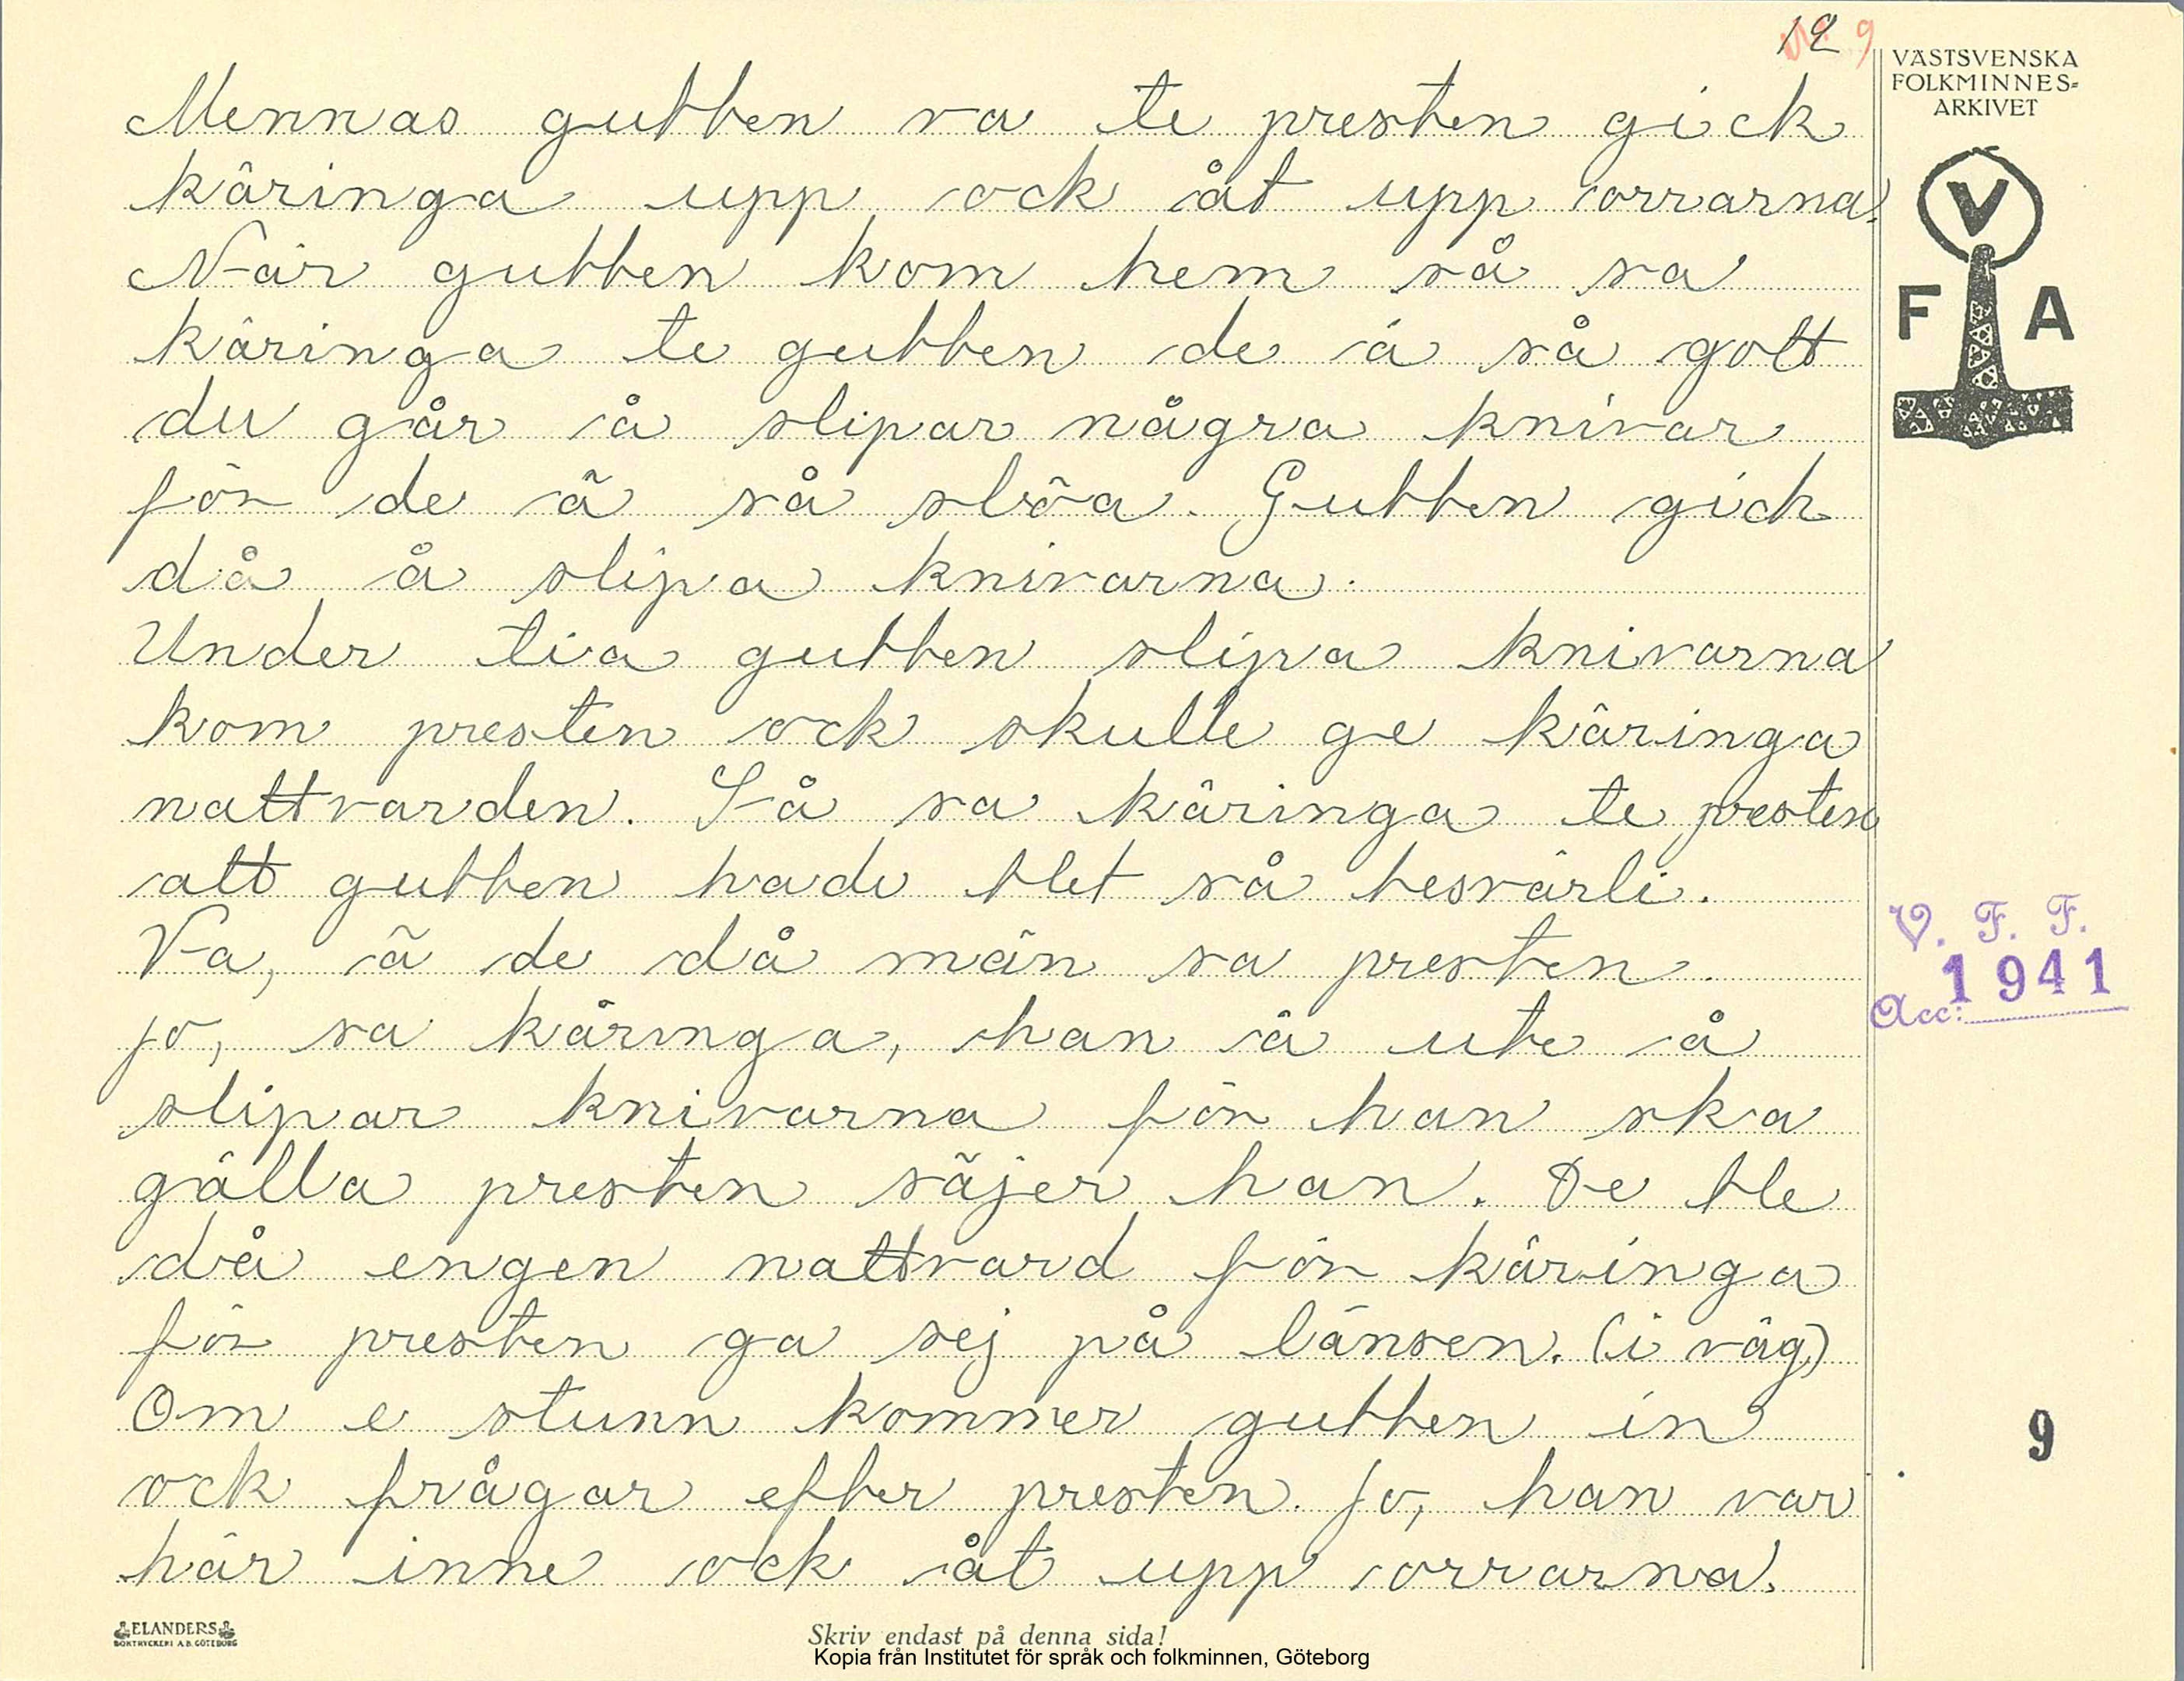 12 9
VÄSTSVENSKA
FOLKMINNES-
ARKIVET
V
F A
Mennas gubben va te presten gick
käringa upp ock åt upp orrarna.
När gubben kom hem så sa
käringa te gubben de ä så gott
du går å slipar några knivar
för de ä så slöa. Gubben gick
då å slipa knivarna.
Under tia gubben slipa knivarna
kom presten ock skulle ge käringa
nattvarden. Så sa käringa te presten
att gubben hade blet så besvärli.
Va, ä de då män sa presten.
jo, sa käringa, han ä ute å
slipar knivarna för han ska
gälla presten säjer han. De ble
då engen nattvard för käringa
för presten ga sej på länsen. (i väg)
Om e stunn kommer gubben in
ock frågar efter presten. Jo, han var
här inne ock åt upp orrarna.
V. F. F.
1941
Acc:
9
ELANDERS
BOKTRYCKERI A.B. GÖTEBORG
Skriv endast på denna sida!
Kopia från Institutet för språk och folkminnen, Göteborg